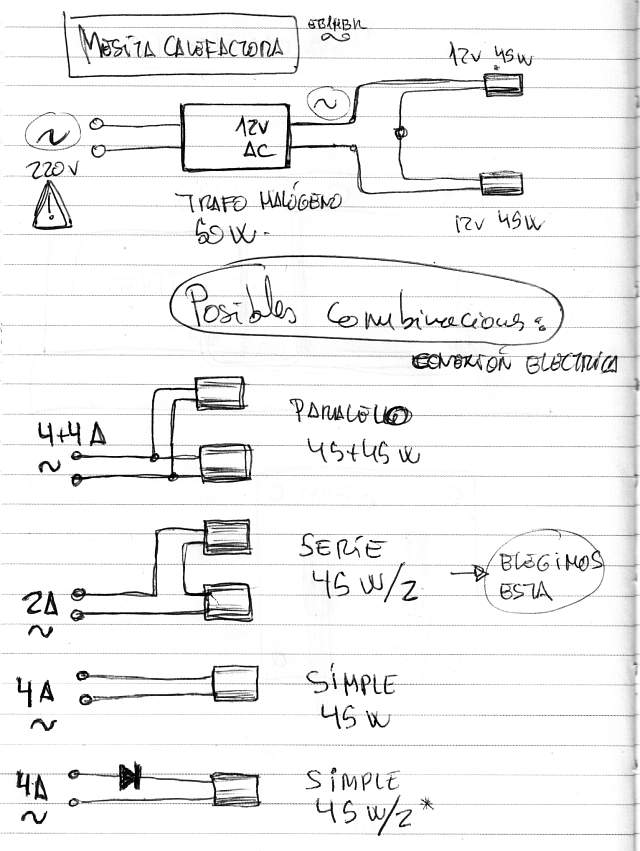 MESITA CALEFACTORA
EB1HBK
12V 45W
~
~
12V
AC
220V
!
TRAFO HALÓGENO
50W.
12V 45W
Posibles Combinaciones:
CONEXIÓN ELECTRICA
4+4A
~
PARALELO
45+45W
2A
~
SERIE
45W/2
ELEGIMOS
ESTA
4A
~
SIMPLE
45W
4A
~
SIMPLE
45W/2*